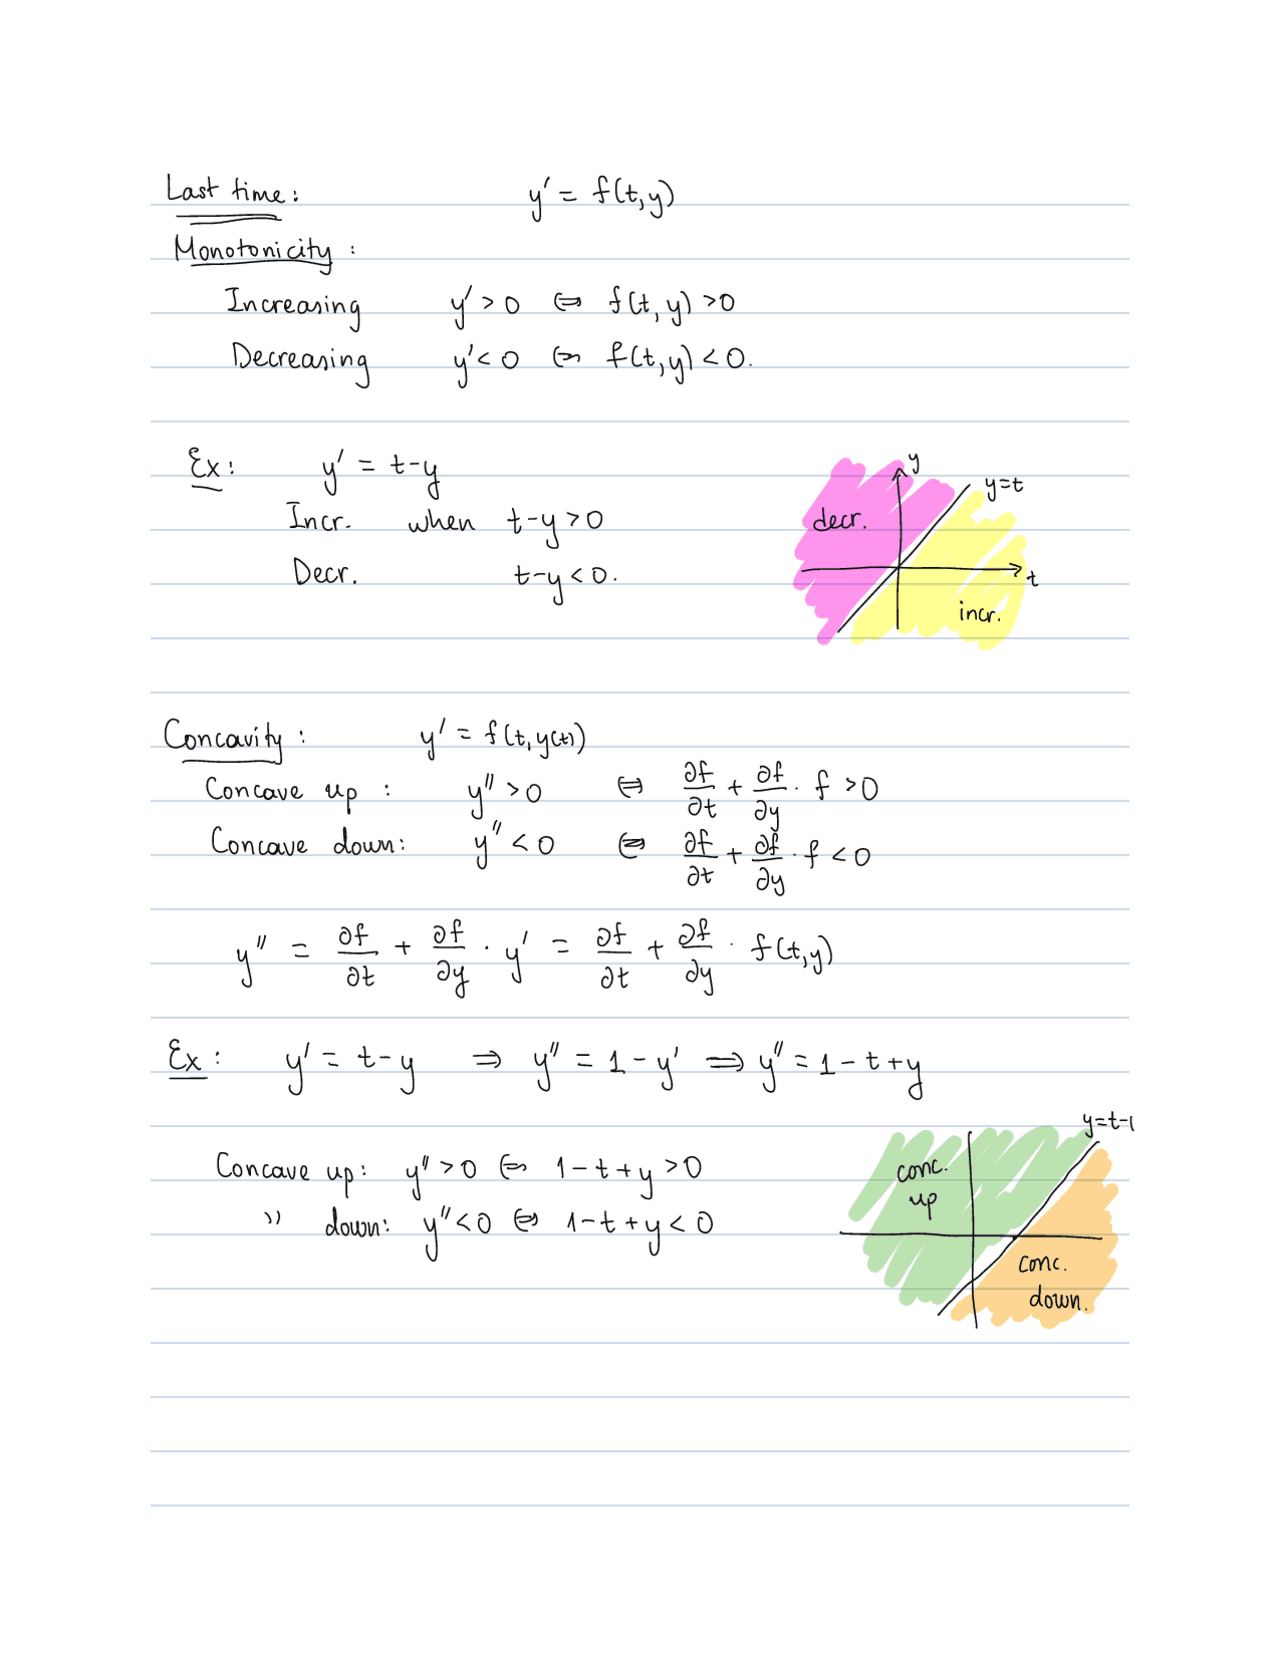 Last time: y' = f(t,y)
Monotonicity:
Increasing y' > 0 ⇔ f(t,y) > 0
Decreasing y' < 0 ⇔ f(t,y) < 0.
Ex: y' = t-y
Incr. when t-y > 0
Decr. t-y < 0.
y
y=t
decr.
t
incr.
Concavity: y' = f(t, y(t))
Concave up: y'' > 0 ⇔ ∂f/∂t + ∂f/∂y · f > 0
Concave down: y'' < 0 ⇔ ∂f/∂t + ∂f/∂y · f < 0
y'' = ∂f/∂t + ∂f/∂y · y' = ∂f/∂t + ∂f/∂y · f(t,y)
Ex: y' = t-y ⇒ y'' = 1 - y' ⇒ y'' = 1-t+y
Concave up: y'' > 0 ⇔ 1-t+y > 0
" down: y'' < 0 ⇔ 1-t+y < 0
y=t-1
conc.
up
conc.
down.